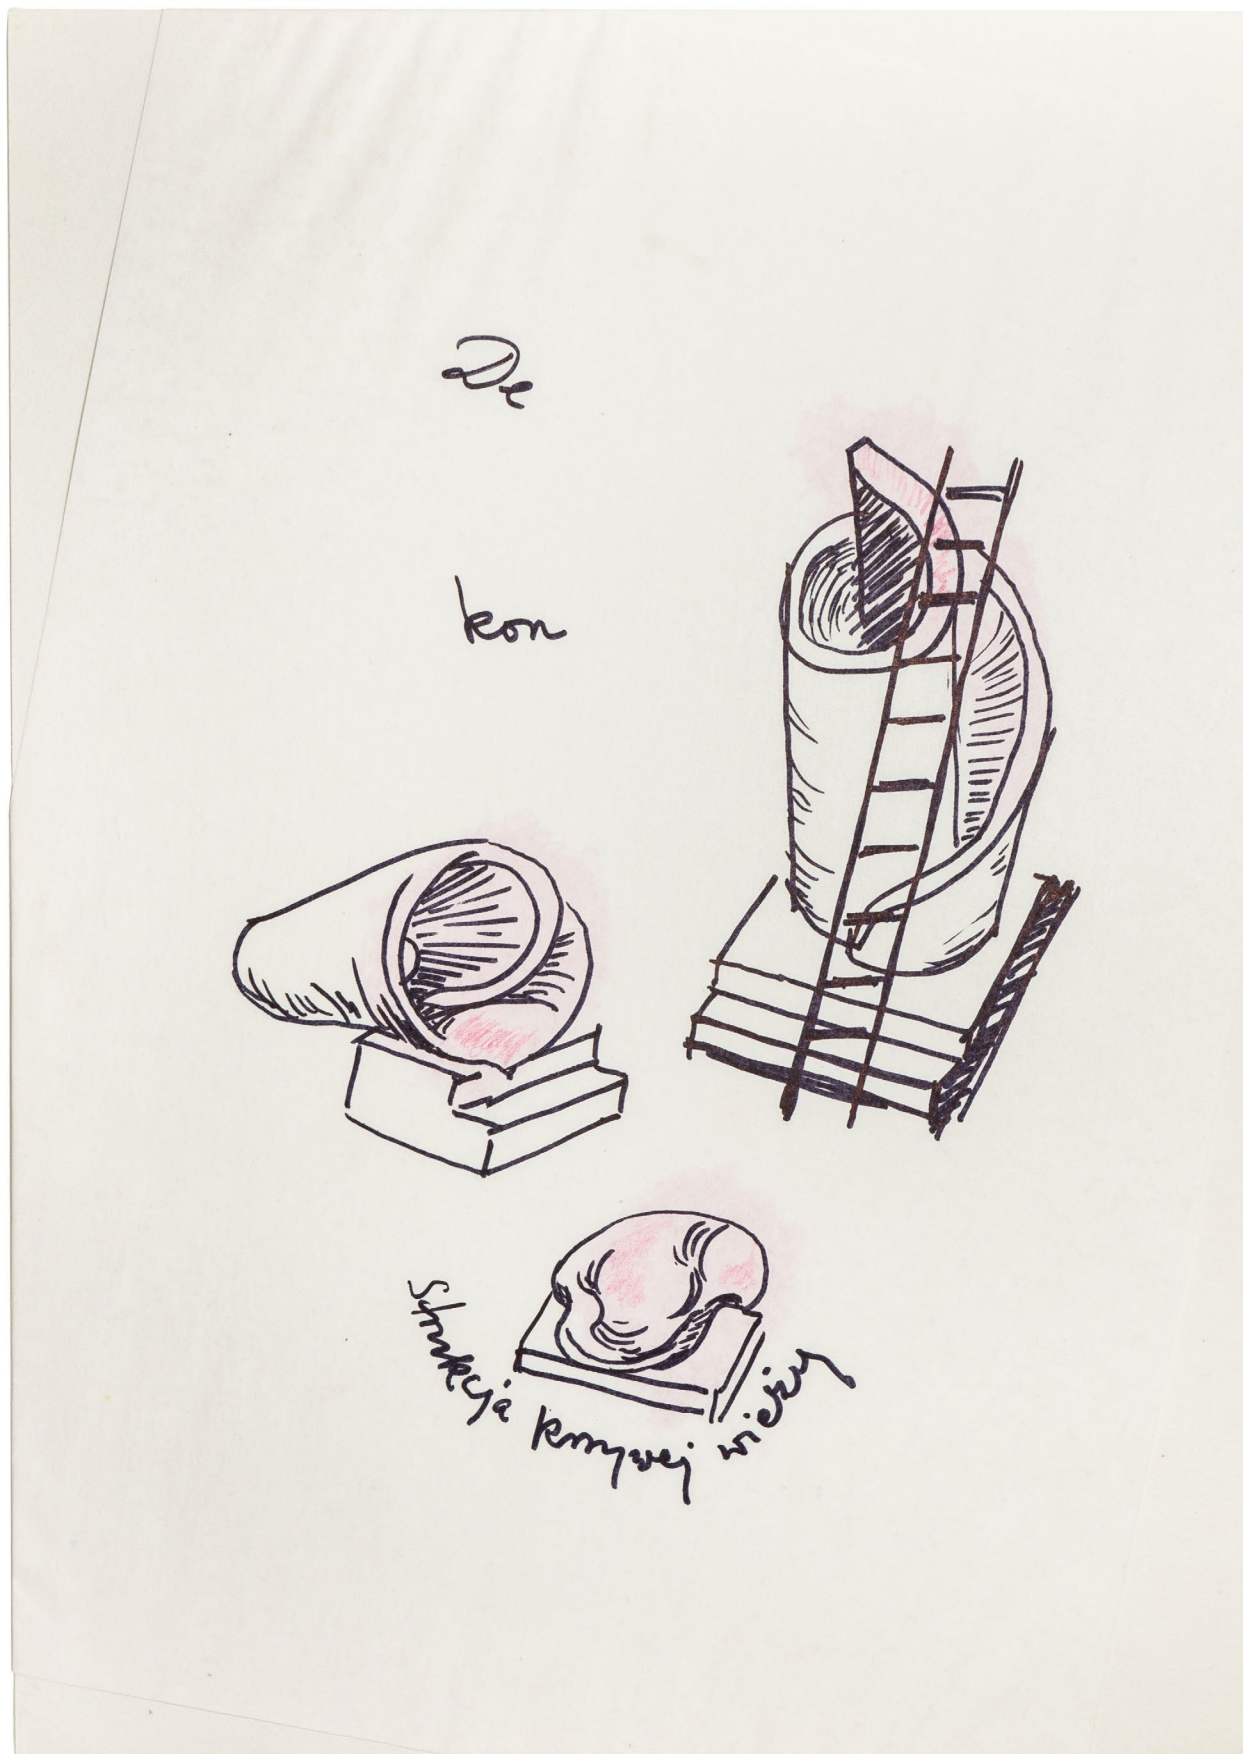 De
kon
strukcja krzywej wieży